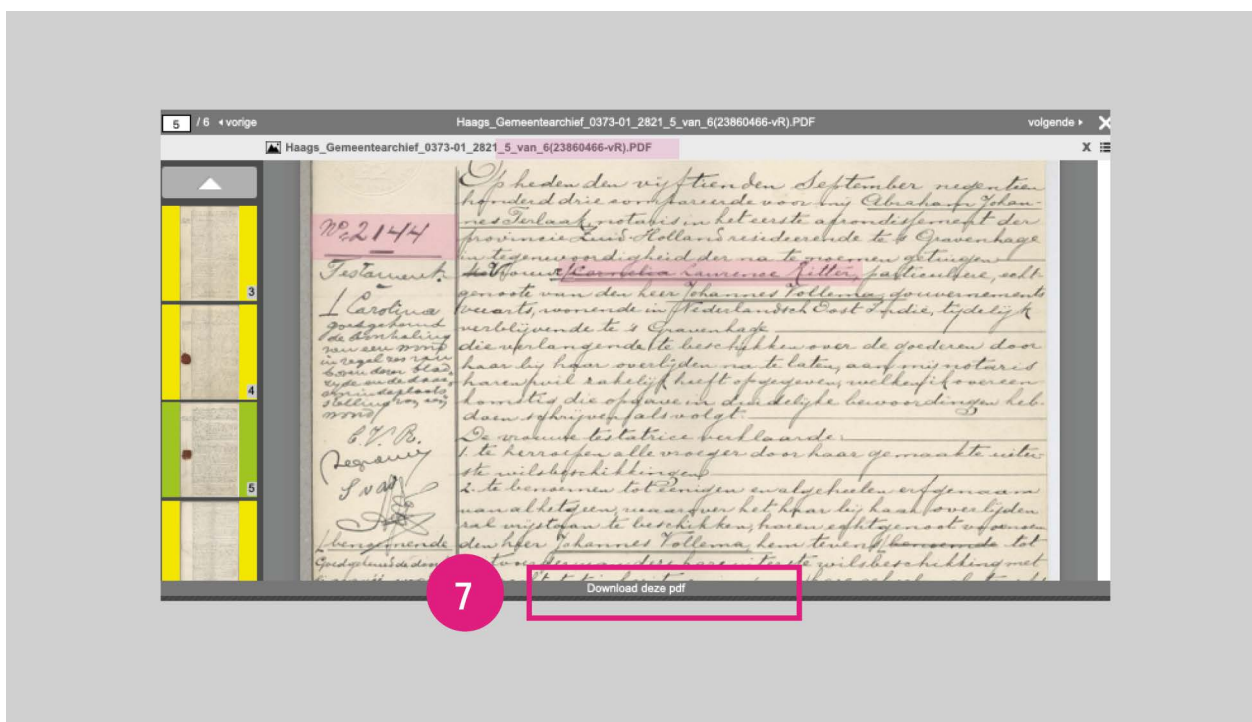 5 / 6 vorige
Haags_Gemeentearchief_0373-01_2821_5_van_6(23860466-vR).PDF
volgende X
Haags_Gemeentearchief_0373-01_2821_5_van_6(23860466-vR).PDF
X
3
4
5
No. 2144
Testament.
Carolina
goedgekeurd
C.V.R.
benoemende
Op heden den vijftienden September negentien
honderd drie compareerde voor mij Abraham Johan-
nes Terlaak, notaris in het eerste arrondissement der
provincie Zuid-Holland resideerende te 's Gravenhage
in tegenwoordigheid der na te noemen getuigen
Vrouwe Cornelia Laurence Ritter, particuliere, echt-
genoote van den heer Johannes Vollema, gouvernements
veearts, wonende in Nederlandsch Oost Indie, tijdelijk
verblijvende te 's Gravenhage
die verlangende te beschikken over de goederen door
haar bij haar overlijden na te laten, aan mij notaris
haren wil zakelijk heeft opgegeven, welken ik overeen-
komstig die opgave in duidelijke bewoordingen heb
doen schrijven als volgt:
De vrouwe testatrice verklaarde:
1. te herroepen alle vroeger door haar gemaakte uiter
ste wilsbeschikkingen
2. te benoemen tot eenigen en algeheelen erfgenaam
van al hetgeen, waarover het haar bij haar overlijden
zal vrijstaan te beschikken, haren echtgenoot
den heer Johannes Vollema, hem tevens benoemde tot
wilsbeschikking met
7
Download deze pdf